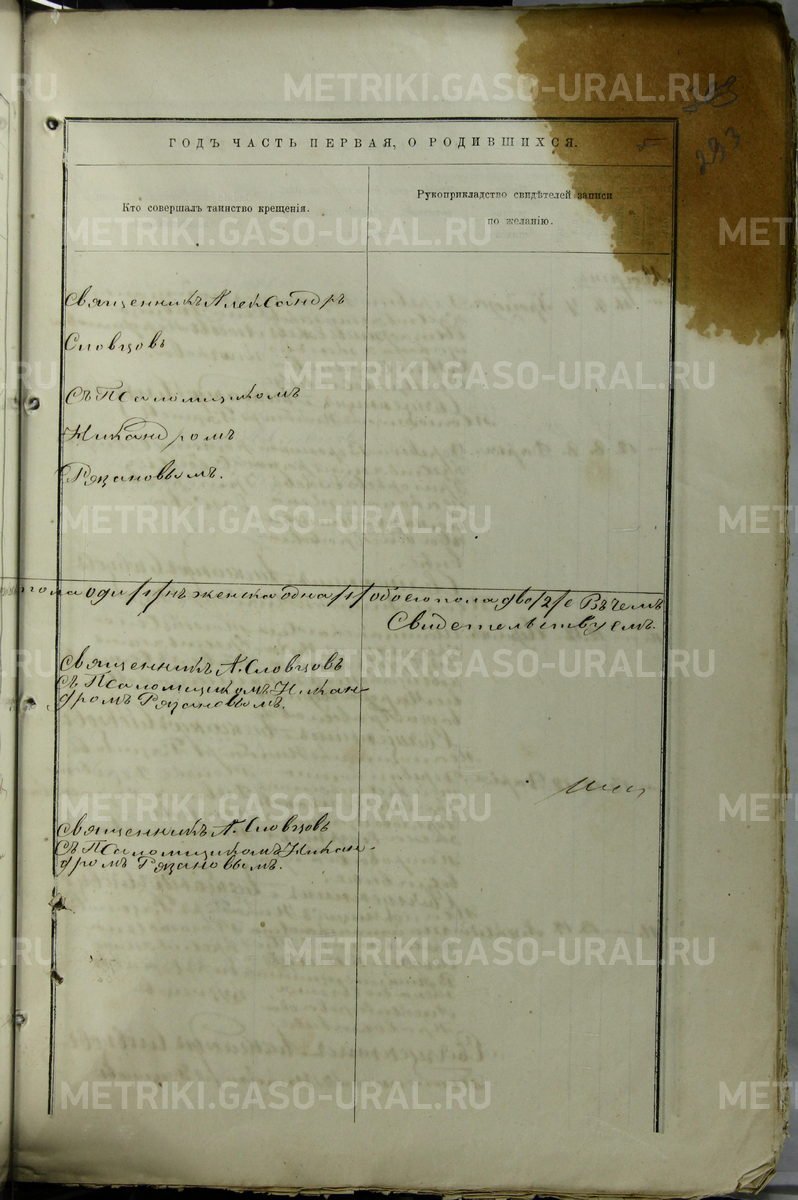 293
ГОДЪ ЧАСТЬ ПЕРВАЯ, О РОДИВШИХСЯ.
Кто совершалъ таинство крещенія.
Рукоприкладство свидѣтелей записи
по желанію.
Священникъ Александръ
Словцовъ
съ Псаломщикомъ
Никандромъ
Рязановымъ.
пола оди/1/нъ женска одна/1/обоего пола дво/2/е Въ чемъ
Свидетельствуемъ.
Священникъ А. Словцовъ
съ Псаломщикомъ Никан-
дромъ Рязановымъ.
Священникъ А. Словцовъ
съ Псаломщикомъ Никан-
дромъ Рязановымъ.
METRIKI.GASO-URAL.RU